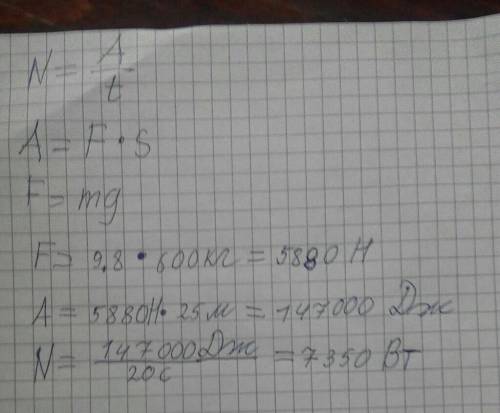 N = A/t
A = F • S
F = mg
F = 9.8 • 600кг = 5880 Н
A = 5880Н • 25м = 147000 Дж
N = 147000Дж/20с = 7350 Вт